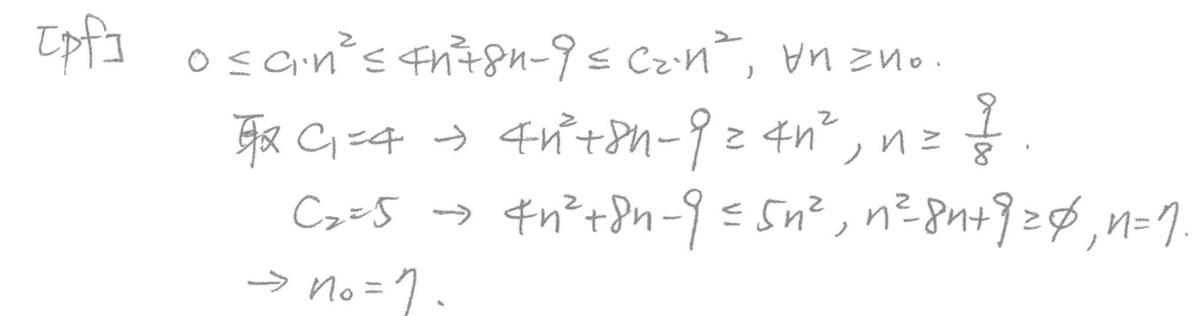 [pf] 0 ≤ C₁·n² ≤ 4n²+8n-9 ≤ C₂·n², ∀n ≥ n₀.
取 C₁=4 → 4n²+8n-9 ≥ 4n², n ≥ 9/8.
C₂=5 → 4n²+8n-9 ≤ 5n², n²-8n+9 ≥ 0, n=7.
→ n₀=7.